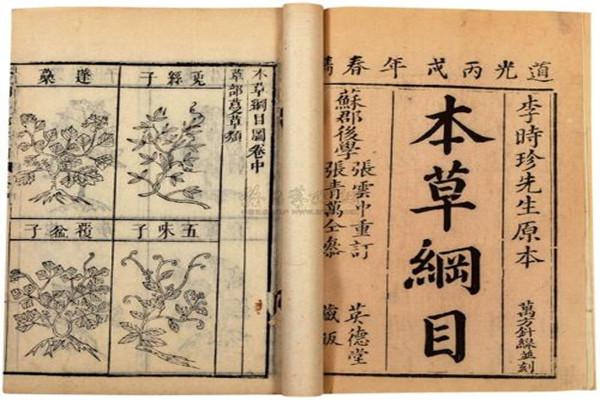 道光丙戌年春鐫
李時珍先生原本
萬方針線並刻
本草綱目
蘇郡後學
張雲中重訂
張青萬仝參
英德堂
藏版
本草綱目圖卷中
草部蔓草類
菟絲子
蓬蘽
五味子
覆盆子